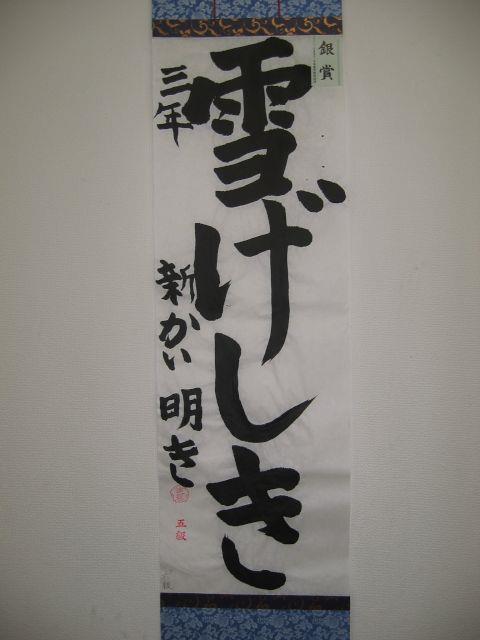 銀賞
雪げしき
三年 新かい 明き
五級